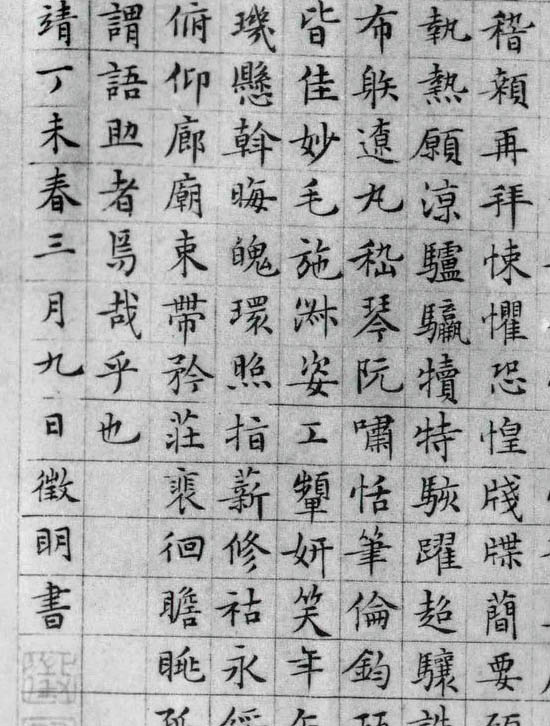 稽顙再拜悚懼恐惶牋牒簡要
執熱願涼驢騾犢特駭躍超驤
布射遼丸嵇琴阮嘯恬筆倫鈞
皆佳妙毛施淑姿工顰妍笑年
璣懸斡晦魄環照指薪修祜永
俯仰廊廟束帶矜莊裴徊瞻眺
謂語助者焉哉乎也
靖丁未春三月九日徵明書